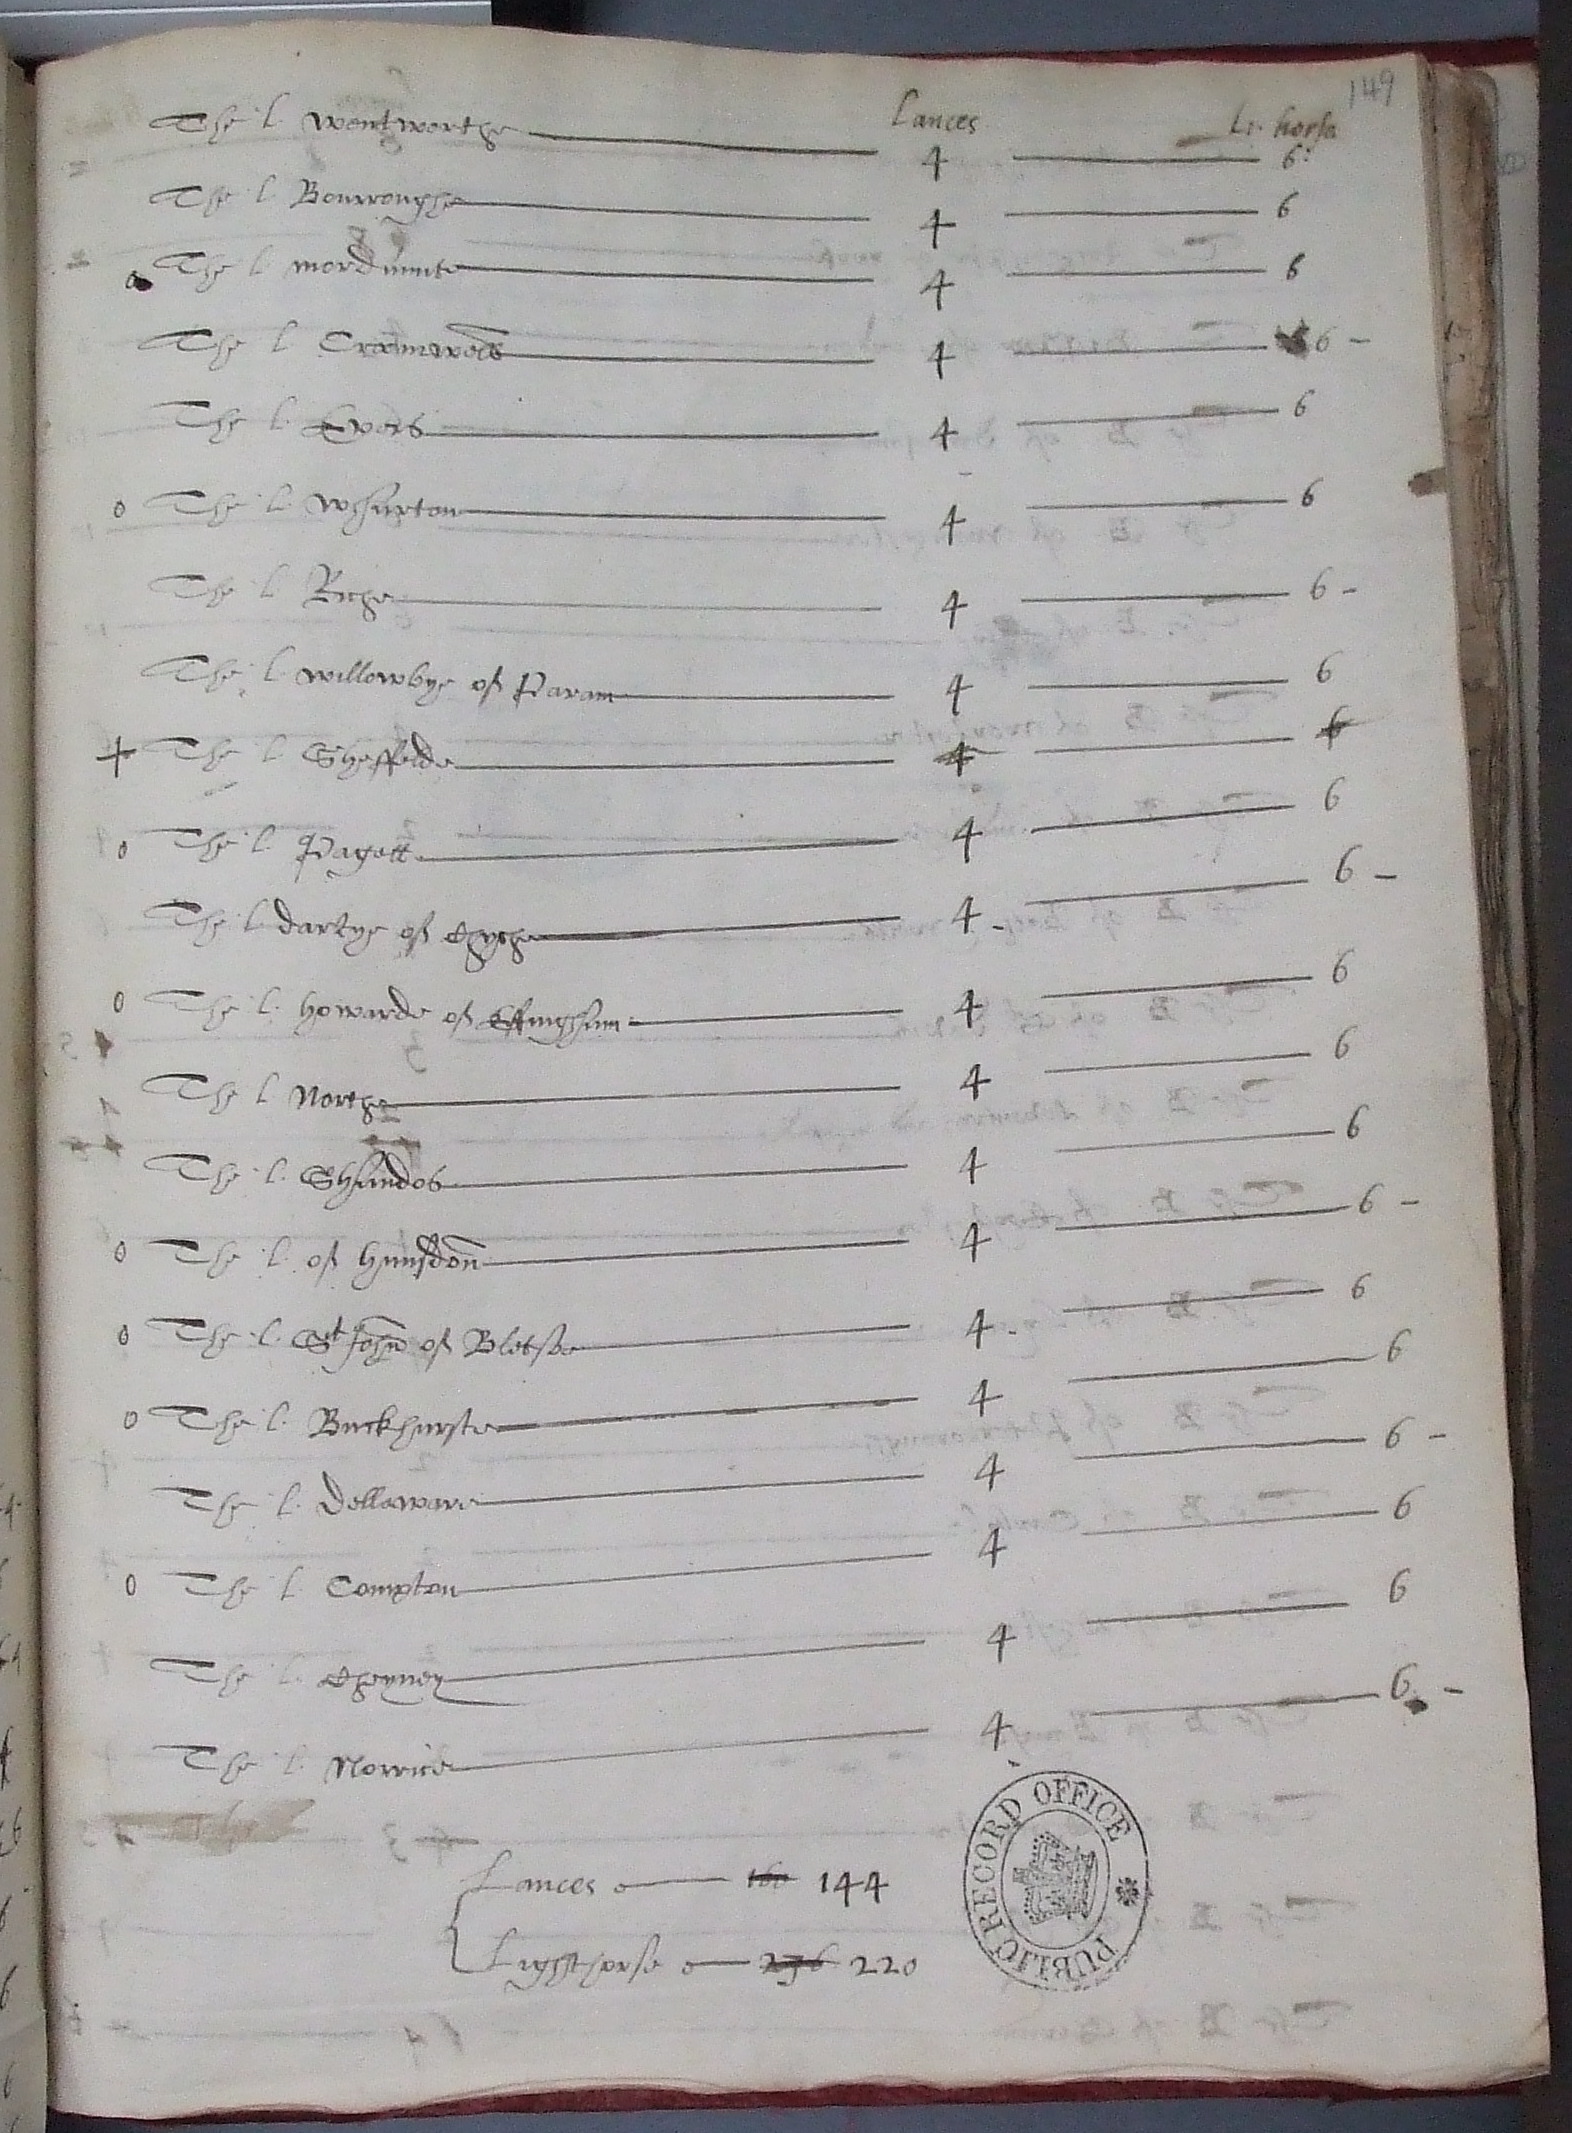 149
Lances Li. horse
The l. Wentworthe 4 6
The l. Bourroughe 4 6
The l. mordaunte 4 6
The l. Cromwell 4 6 -
The l. Evers 4 6
o The l. Wharton 4 6
The l. Riche 4 6 -
The l. willowbye of Param 4 6
+ The l. Sheffelde 4 6
o The l. Pagett 4 6
The l. dartye of Chyche 4 - 6 -
o The l. howarde of Effingham 4 6
The l. Northe 4 6
The l. Shandos 4 6
o The l. of hunsdon 4 6 -
o The l. St John of Bletsoe 4 - 6
o The l. Buckhurste 4 6
The l. Dellaware 4 6 -
o The l. Compton 4 6
The l. Cheyney 4 6
The l. Norrice 4 6 -
Lances 160 144
Lyghthorse 236 220
PUBLIC RECORD OFFICE